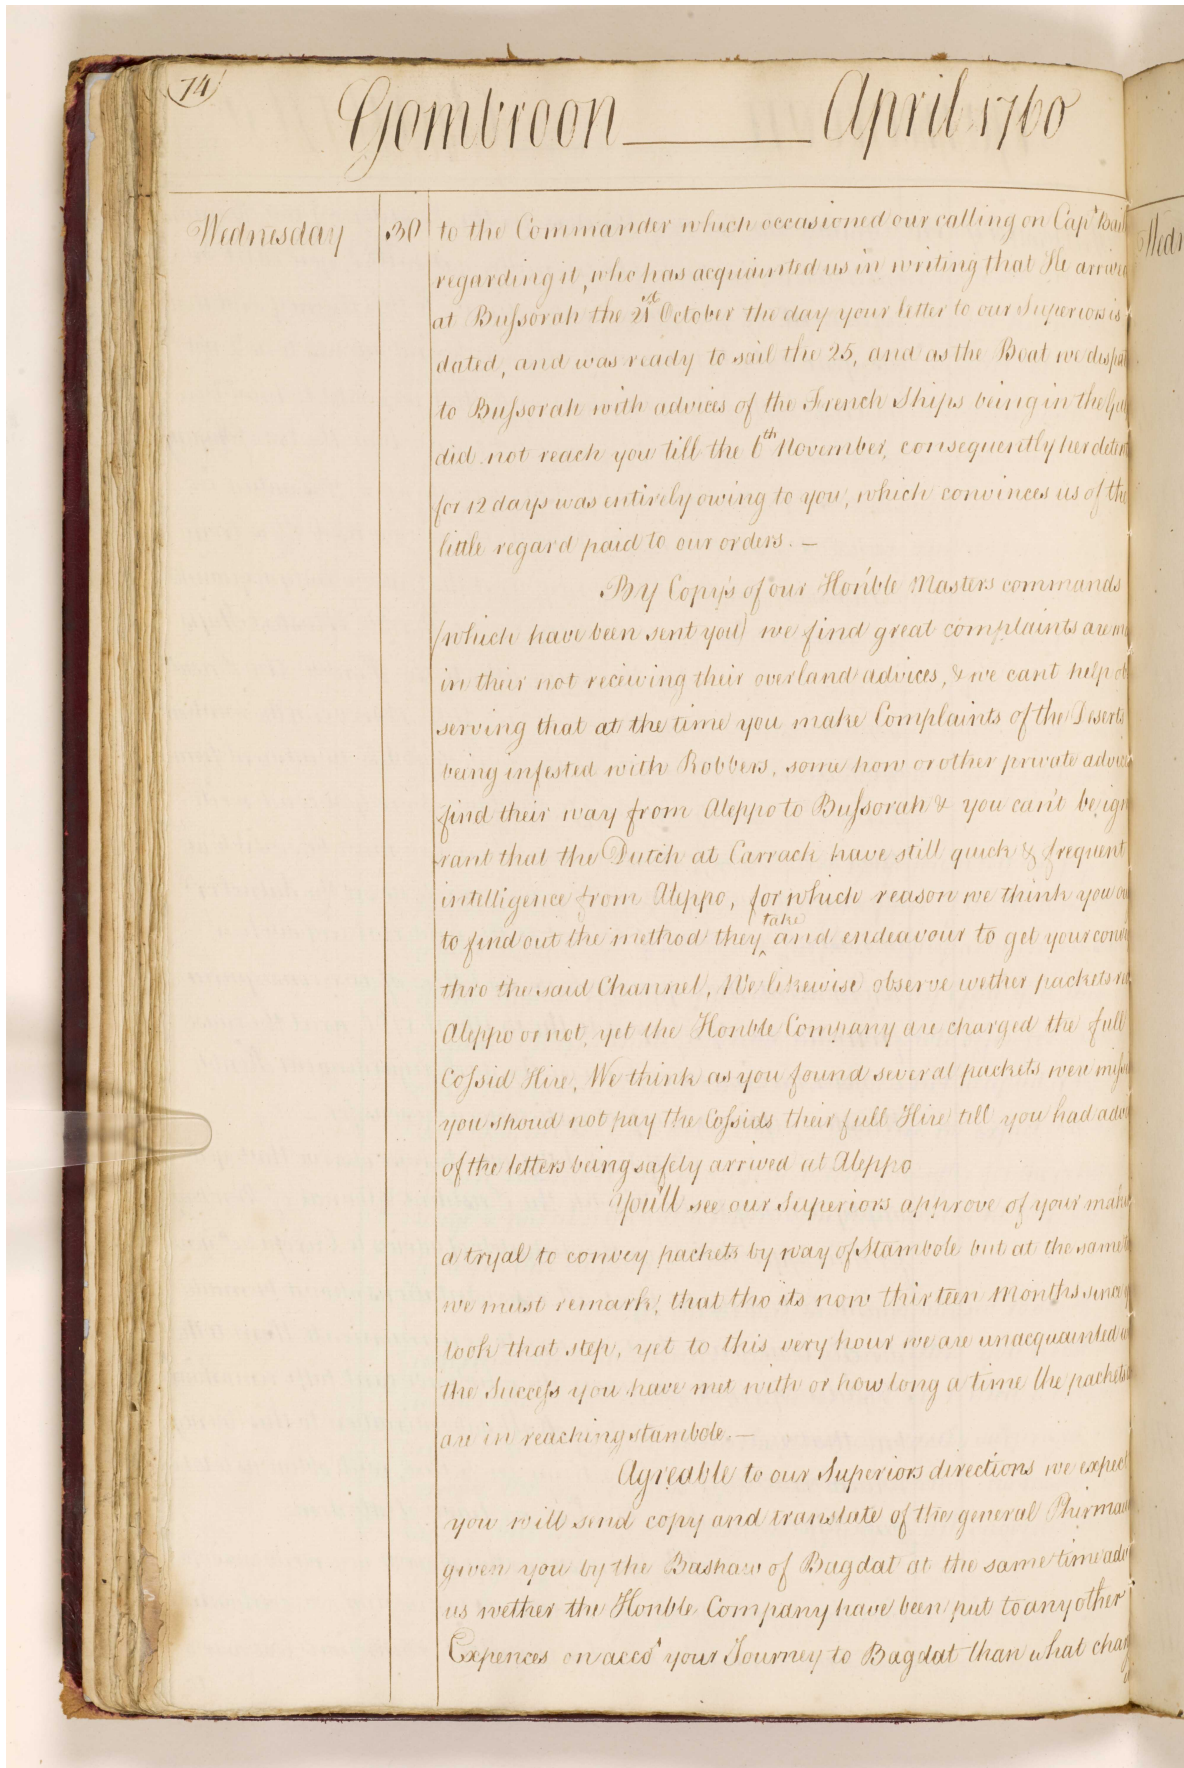 74
Gombroon April 1760
Wednesday 30 to the Commander which occasioned our calling on Cap.t Bail
regarding it, who has acquainted us in writing that He arrived
at Bussorah the 21st October the day your letter to our Superiors is
dated, and was ready to sail the 25, and as the Boat we dispat
to Bussorah with advices of the French Ships being in the Gul
did not reach you till the 6th November, consequently her deten
for 12 days was entirely owing to you, which convinces us of the
little regard paid to our orders. —
By Copy's of our Hon'ble Masters commands
(which have been sent you) we find great complaints are ma
in their not receiving their overland advices, & we cant help ob
serving that at the time you make Complaints of the Deserts
being infested with Robbers, some how or other private advices
find their way from Aleppo to Bussorah & you can't be igno
rant that the Dutch at Carrack have still quick & frequent
intelligence from Aleppo, for which reason we think you ou
to find out the method they take and endeavour to get your conve
thro the said Channel, We likewise observe wether packets re
Aleppo or not, yet the Honble Company are charged the full
Cossid Hire, We think as you found several packets were miss
you shoud not pay the Cossids their full Hire till you had advi
of the letters being safely arrived at Aleppo
You'll see our Superiors approve of your maki
a tryal to convey packets by way of Stambole but at the same t
we must remark, that tho its now thirteen Months since y
took that step, yet to this very hour we are unacquainted w
the Success you have met with or how long a time the packets
are in reaching Stambole. —
Agreable to our Superiors directions we expect
you will send copy and translate of the general Phirmaun
given you by the Bashaw of Bagdat at the same time adv
us wether the Honble Company have been put to any other
Expences on acco.t your Journey to Bagdat than what charg
Wedn